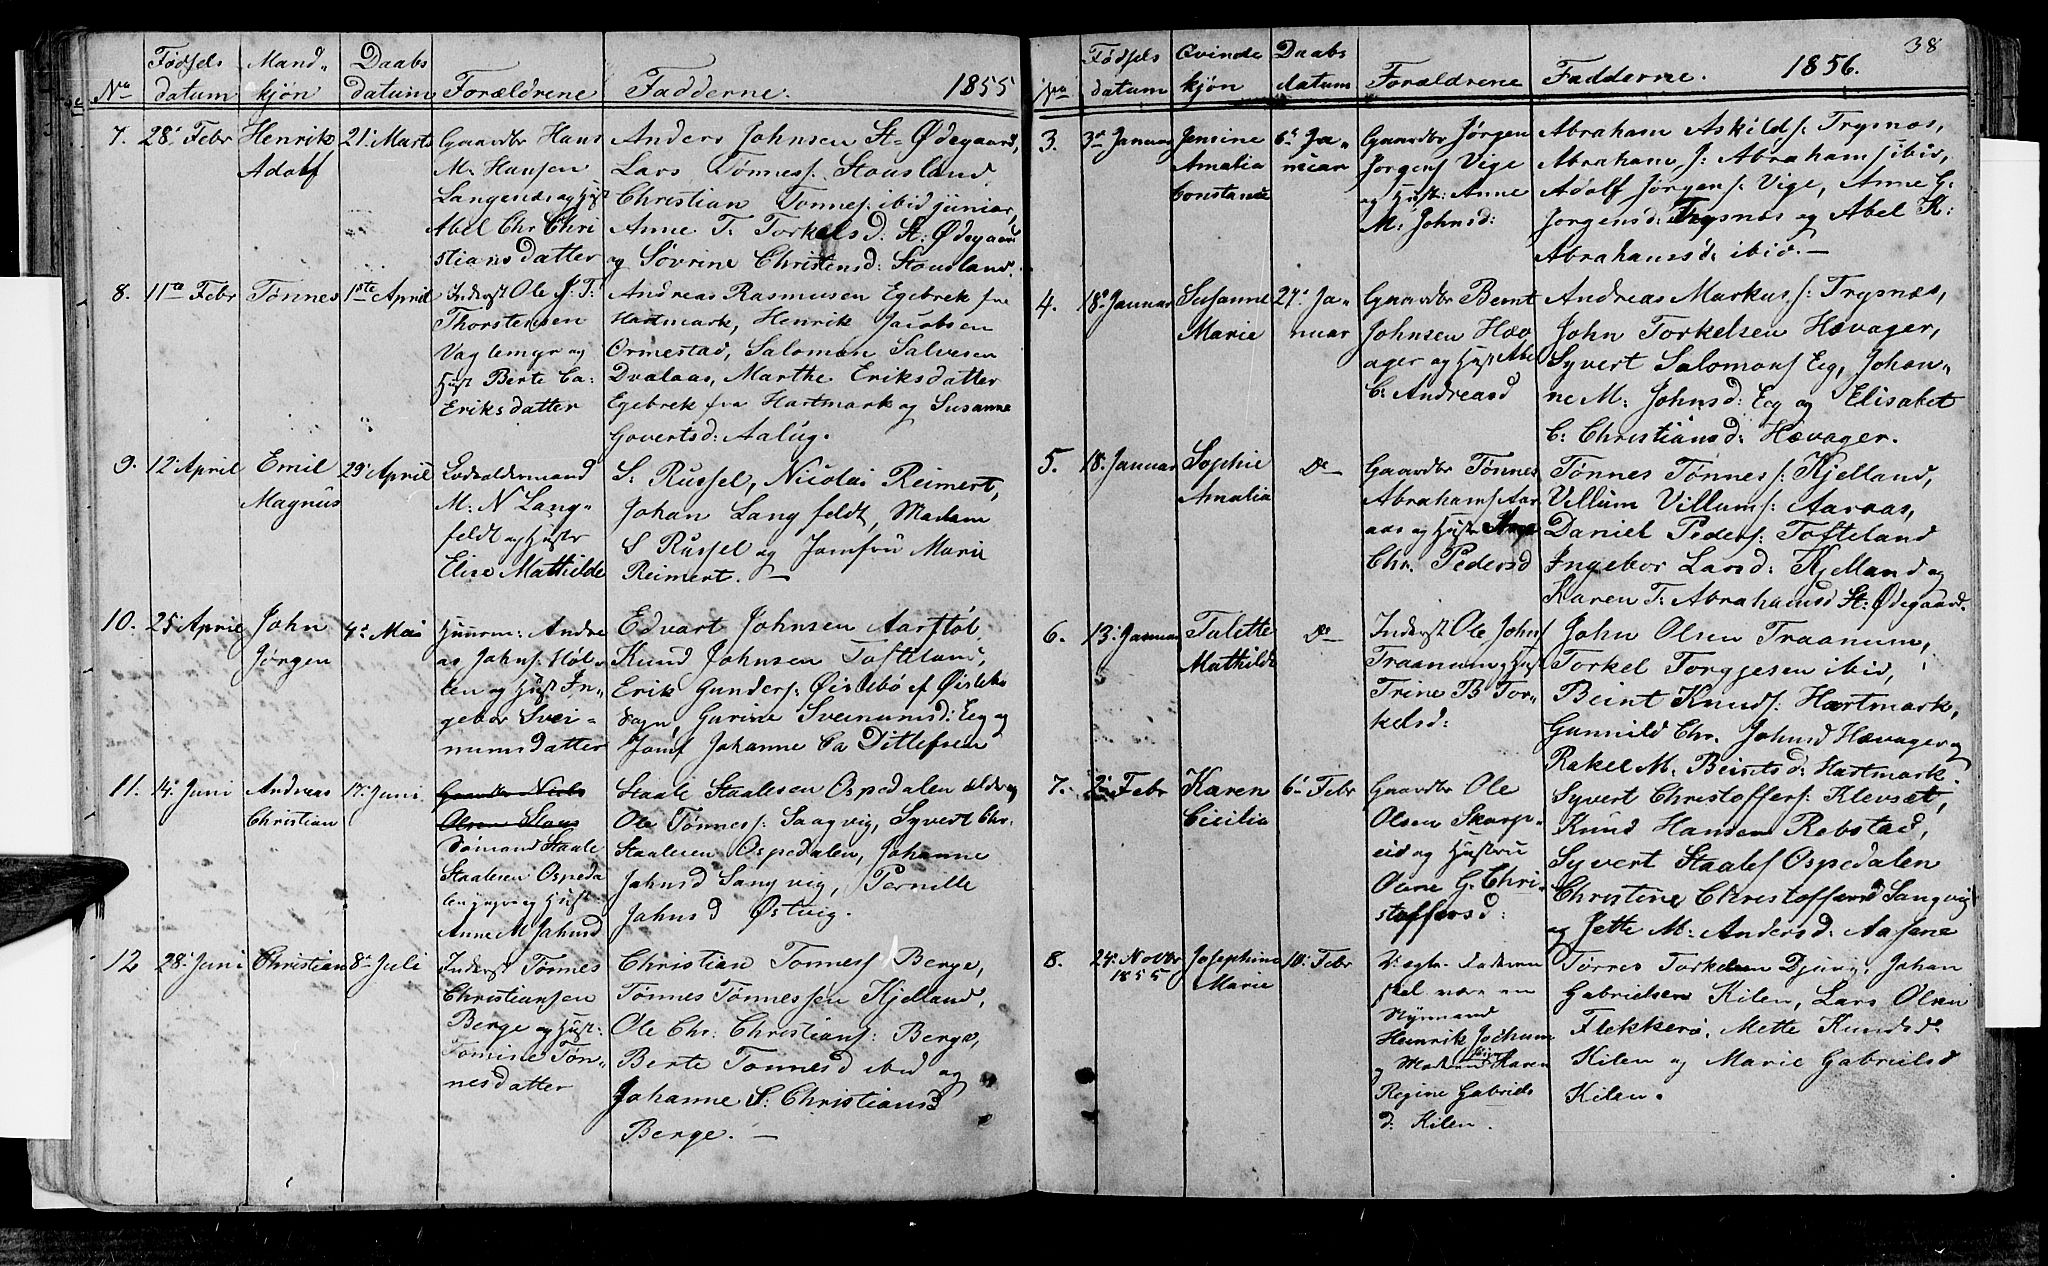 No Fødsels datum Mandkjøn Daabs datum Forældrene Fadderne. 1855
7. 28de Febr Henrik Adolf 21de Marts
Gaardbr Hans
M. Hansen
Langenæs og Hust
Abel Chr Chri
stiansdatter
Anders Johnsen St: Ødegaard,
Lars Tønness: Stousland
Christian Tønnes: ibid junior,
Anne T. Torkelsd. St: Ødegaard
og Søvrine Christensd: Stousland.
8. 11te Febr Tønnes 1ste April
Inderst Ole J. T:
Thorstensen
Vaglemyr og
Hust Berte Ca:
Eriksdatter
Andreas Rasmusen Egebrek fra
Hartmark, Henrik Jacobsen
Ormestad, Salomon Salvesen
Dvalaas, Marthe Eriksdatter
Egebrek fra Hartmark og Susanne
Govertsd: Aalug.
9. 12te April Emil Magnus 29de April
Lodsoldermand
M: N Lang
feldt og Hustr
Elise Mathilde
S. Russel, Nicolai Reimert,
Johan Langfeldt, Madam
S Russel og Jomfru Marie
Reimert. —
10. 25 April John Jørgen 4de Mai
Huusm: Andre
as Johns: Høl
len og Hust In
gebor Svei
numsdatter
Edvart Johnsen Aarstøl,
Knud Johnsen Tofteland,
Erik Gunders: Øislebø af Øislebø
Sogn, Gurine Sveinumsd: Eeg og
Jomf Johanne Ca Ditlefsen
11. 14. Juni Andreas Christian 17. Juni
Gaardbr Niels
Olsen Staus
Dømand Staale
Staalesen Ospeda
len og Hust
Anne M Johnsd
Staale Staalesen Ospedalen ældre og
Ole Tønness: Saagvig, Syvert Chr.
Staalesen Ospedalen, Johanne
Johnsd Sangvig, Pernille
Johnsd Østvig.
12 28. Juni Christian 8de Juli
Inderst Tønnes
Christiansen
Berge og Hust:
Tomine Tøn
nesdatter
Christian Tønness Berge,
Tønnes Tønnessen Kjelland,
Ole Chr: Christians: Berge,
Berte Tønnesd ibid og
Johanne S: Christiansd
Berge. —
38
No Fødsels datum Qvindekjøn Daabs datum Forældrene Fadderne. 1856.
3. 3de Januar Jensine Amalia Constance 6te Januar
Gaardbr Jørgen
Jørgens: Vige
og Hust: Anne
M: Johnsd:
Abraham Askilds: Trysnæs,
Abraham J: Abrahams: ibid,
Adolf Jørgens: Vige, Anne G.
Jørgensd: Trysnæs og Abel K:
Abrahamsd: ibid. —
4. 18de Januar Susanne Marie 27de Januar
Gaardbr Bent
Johnsen Hæv
ager og Hust Abe
C: Andreasd
Andreas Markus: Trysnæs,
John Torkelsen Hævager,
Syvert Salomons Eeg, Johan
ne M: Johnsd: Eeg og Elisabet
C: Christiansd: Hævager.
5. 18. Januar Sophie Amalia Do
Gaardbr Tønnes
Abrahams Aar
aas og Hust
Chr. Pedersd
Tønnes Tønnes: Kjelland,
Villum Villums: Aaraas,
Daniel Peders: Tofteland
Ingebor Larsd: Kjelland og
Karen T: Abrahamsd St: Ødegaard.
6. 13. Januar Talette Mathilde Do
Inderst Ole Johns
Traanum og Hust
Trine B Tor
kelsd:
John Olsen Traanum,
Torkel Torgjesen ibid,
Beint Knuds: Hartmark,
Gunnild Chr. Johnsd Hævager og
Rakel M. Beintsd: Hartmark.
7. 2de Febr Karen Cicilia 6te Febr
Gaardbr Ole
Olsen Skarp
eid og Hustru
Olene G. Chri
stoffersd:
Syvert Christoffers: Klevset,
Knud Hansen Rebstad,
Syvert Staales Ospedalen
Christine Christoffersd Sangvig
og Jette M: Andersd: Aasane
8. 24. Novbr 1855 Josephine Marie 10. Febr
Uægte. Faderen
skal være en
Heinrik Jochum
Moderen Pige Karen
Regine Gabriels
d: Kilen.
Tørres Torkelsen Djuvig, Johan
Gabrielsen Kilen, Lars Olsen
Flekkerø, Mette Knudsd:
Kilen og Marie Gabrielsd
Kilen.